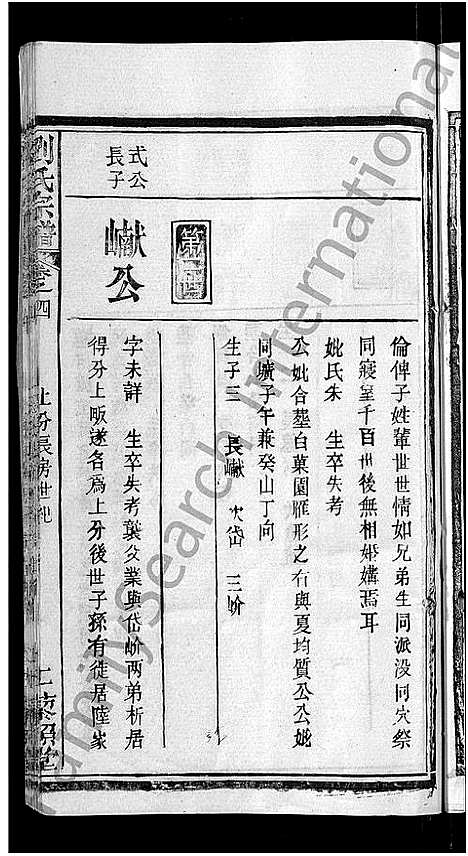 倫俾子姓輩世世情如兄弟生同派没同穴祭
同寢室千百世後無相婚媾焉耳
妣氏朱 生卒失考
公妣合塟白菓園雁形之右與夏均質公公妣
同壙子午兼癸山丁向
生子三 長巘 次岱 三㠹
第四世
式公
長子
巘公
字未詳 生卒失考襲父業與岱㠹兩弟析居
得分上畈遂名為上分後世子孫有徒居陸家
劉氏宗譜
卷之四
上分長房世紀
一
FamilySearch International